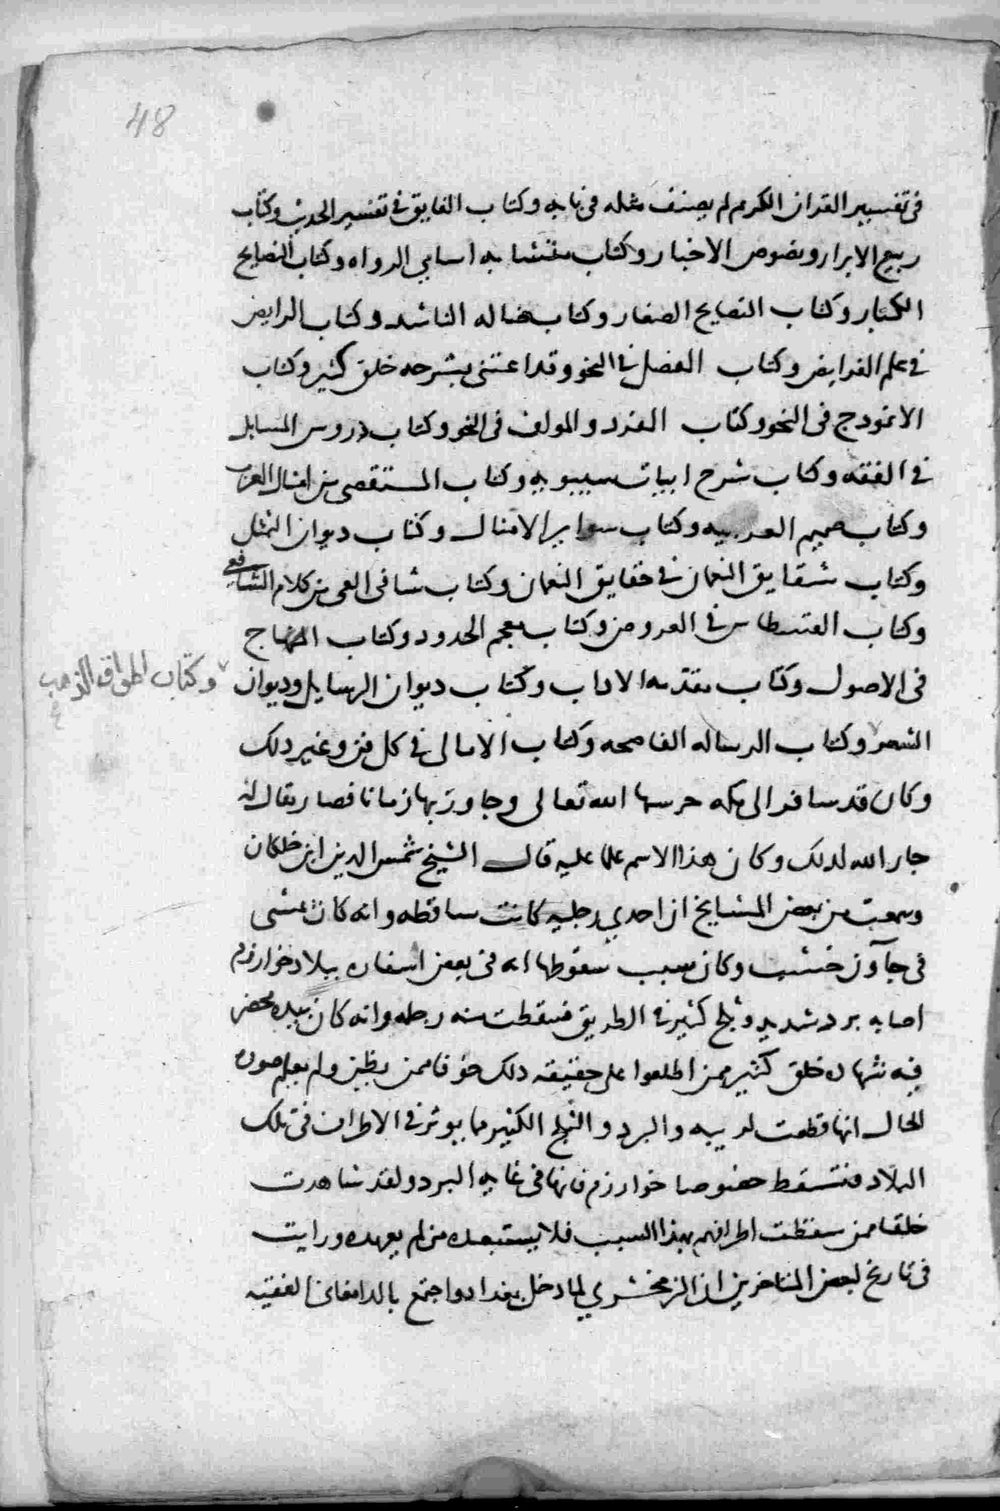 48
في تفسير القران الكريم لم يصنف مثله في بابه وكتاب الفايق في تفسير الحديث وكتاب
ربيع الابرار ونصوص الاخبار وكتاب متشابه اسامي الرواه وكتاب النصايح
الكبار وكتاب النصايح الصغار وكتاب ضاله الناشد وكتاب الرايض
في علم الفرايض وكتاب المفصل في النحو وقد اعتنى بشرحه خلق كثير وكتاب
الانموذج في النحو وكتاب المفرد والمولف في النحو وكتاب دروس المسايل
في الفقه وكتاب شرح ابيات سيبويه وكتاب المستقصى من امثال العرب
وكتاب صميم العربيه وكتاب سواير الامثال وكتاب ديوان التمثل
وكتاب شقايق النعمان في حقايق النعمان وكتاب شافي العي من كلام الشافعي
وكتاب القسطاس في العروض وكتاب معجم الحدود وكتاب المنهاج
في الاصول وكتاب مقدمه الاداب وكتاب ديوان الرسايل وديوان
وكتاب اطواق الذهب
الشعر وكتاب الرساله الناصحه وكتاب الامالى في كل فن وغير ذلك
وكان قد سافر الى مكه حرسها الله تعالى وجاور بها زمانا فصار يقال له
جار الله لذلك وكان هذا الاسم علما عليه قال الشيخ شمس الدين ابن خلكان
وسمعت من بعض المشايخ ان احدي رجليه كانت ساقطه وانه كان يمشى
في جاون خشب وكان سبب سقوطها انه في بعض اسفاره ببلاد خوارزم
اصابه برد شديد وثلج كثير في الطريق فسقطت منه رجله وانه كان بيده محضر
فيه شهاده خلق كثير ممن اطلعوا على حقيقه ذلك خوفا ممن يظن ولم يعلم صوره
الحال انها قطعت لريبه والبرد والثلج الكثير مما يوثر في الاطراف في تلك
البلاد فتسقط خصوصا خوارزم فانها في غايه البرد ولقد شاهدت
خلقا ممن سقطت اطرافهم بهذا السبب فلا يستبعده من لم يعهده ورايت
في تاريخ لبعض المتاخرين ان الزمخشري لما دخل بغداد واجتمع بالدامغاني الفقيه